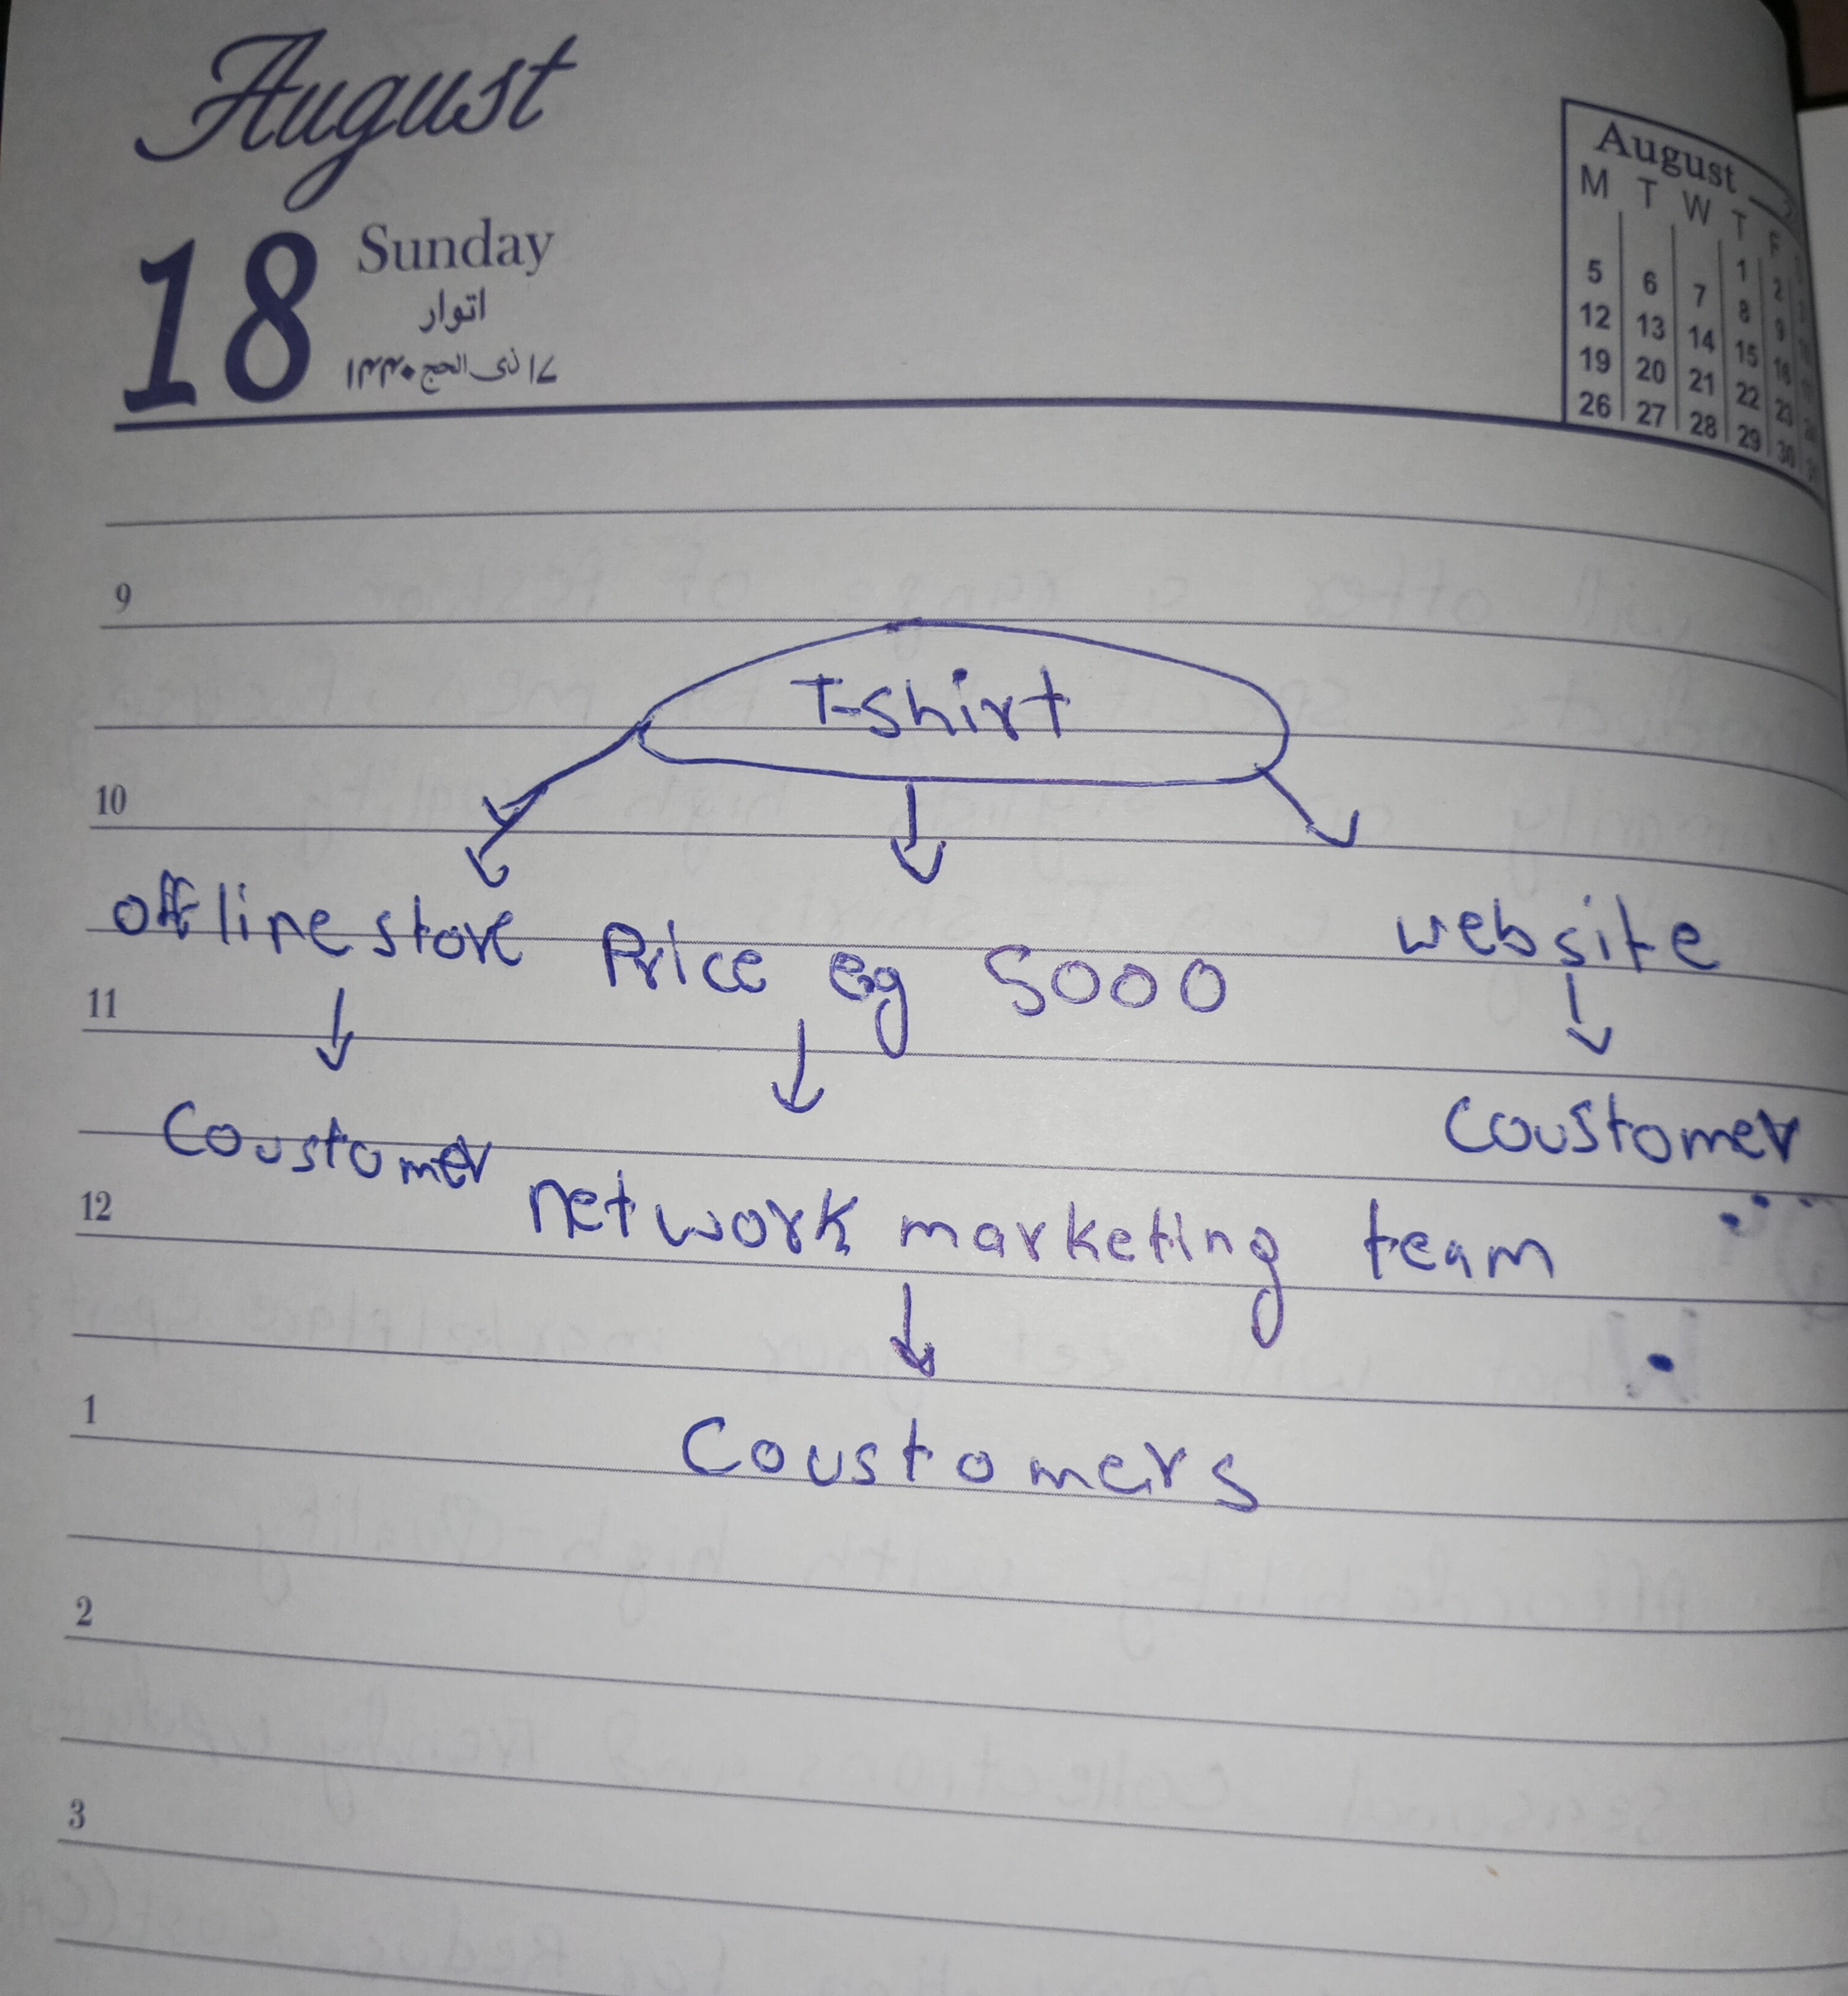 August
18 Sunday
اتوار
۱۷ ذی الحج ۱۴۴۰
August
M T W T F
1 2
5 6 7 8 9
12 13 14 15 16
19 20 21 22 23
26 27 28 29 30
9
T-shirt
10
offline store Price eg 5000 website
11
Coustomer Coustomer
12
network marketing team
1
Coustomers
2
3